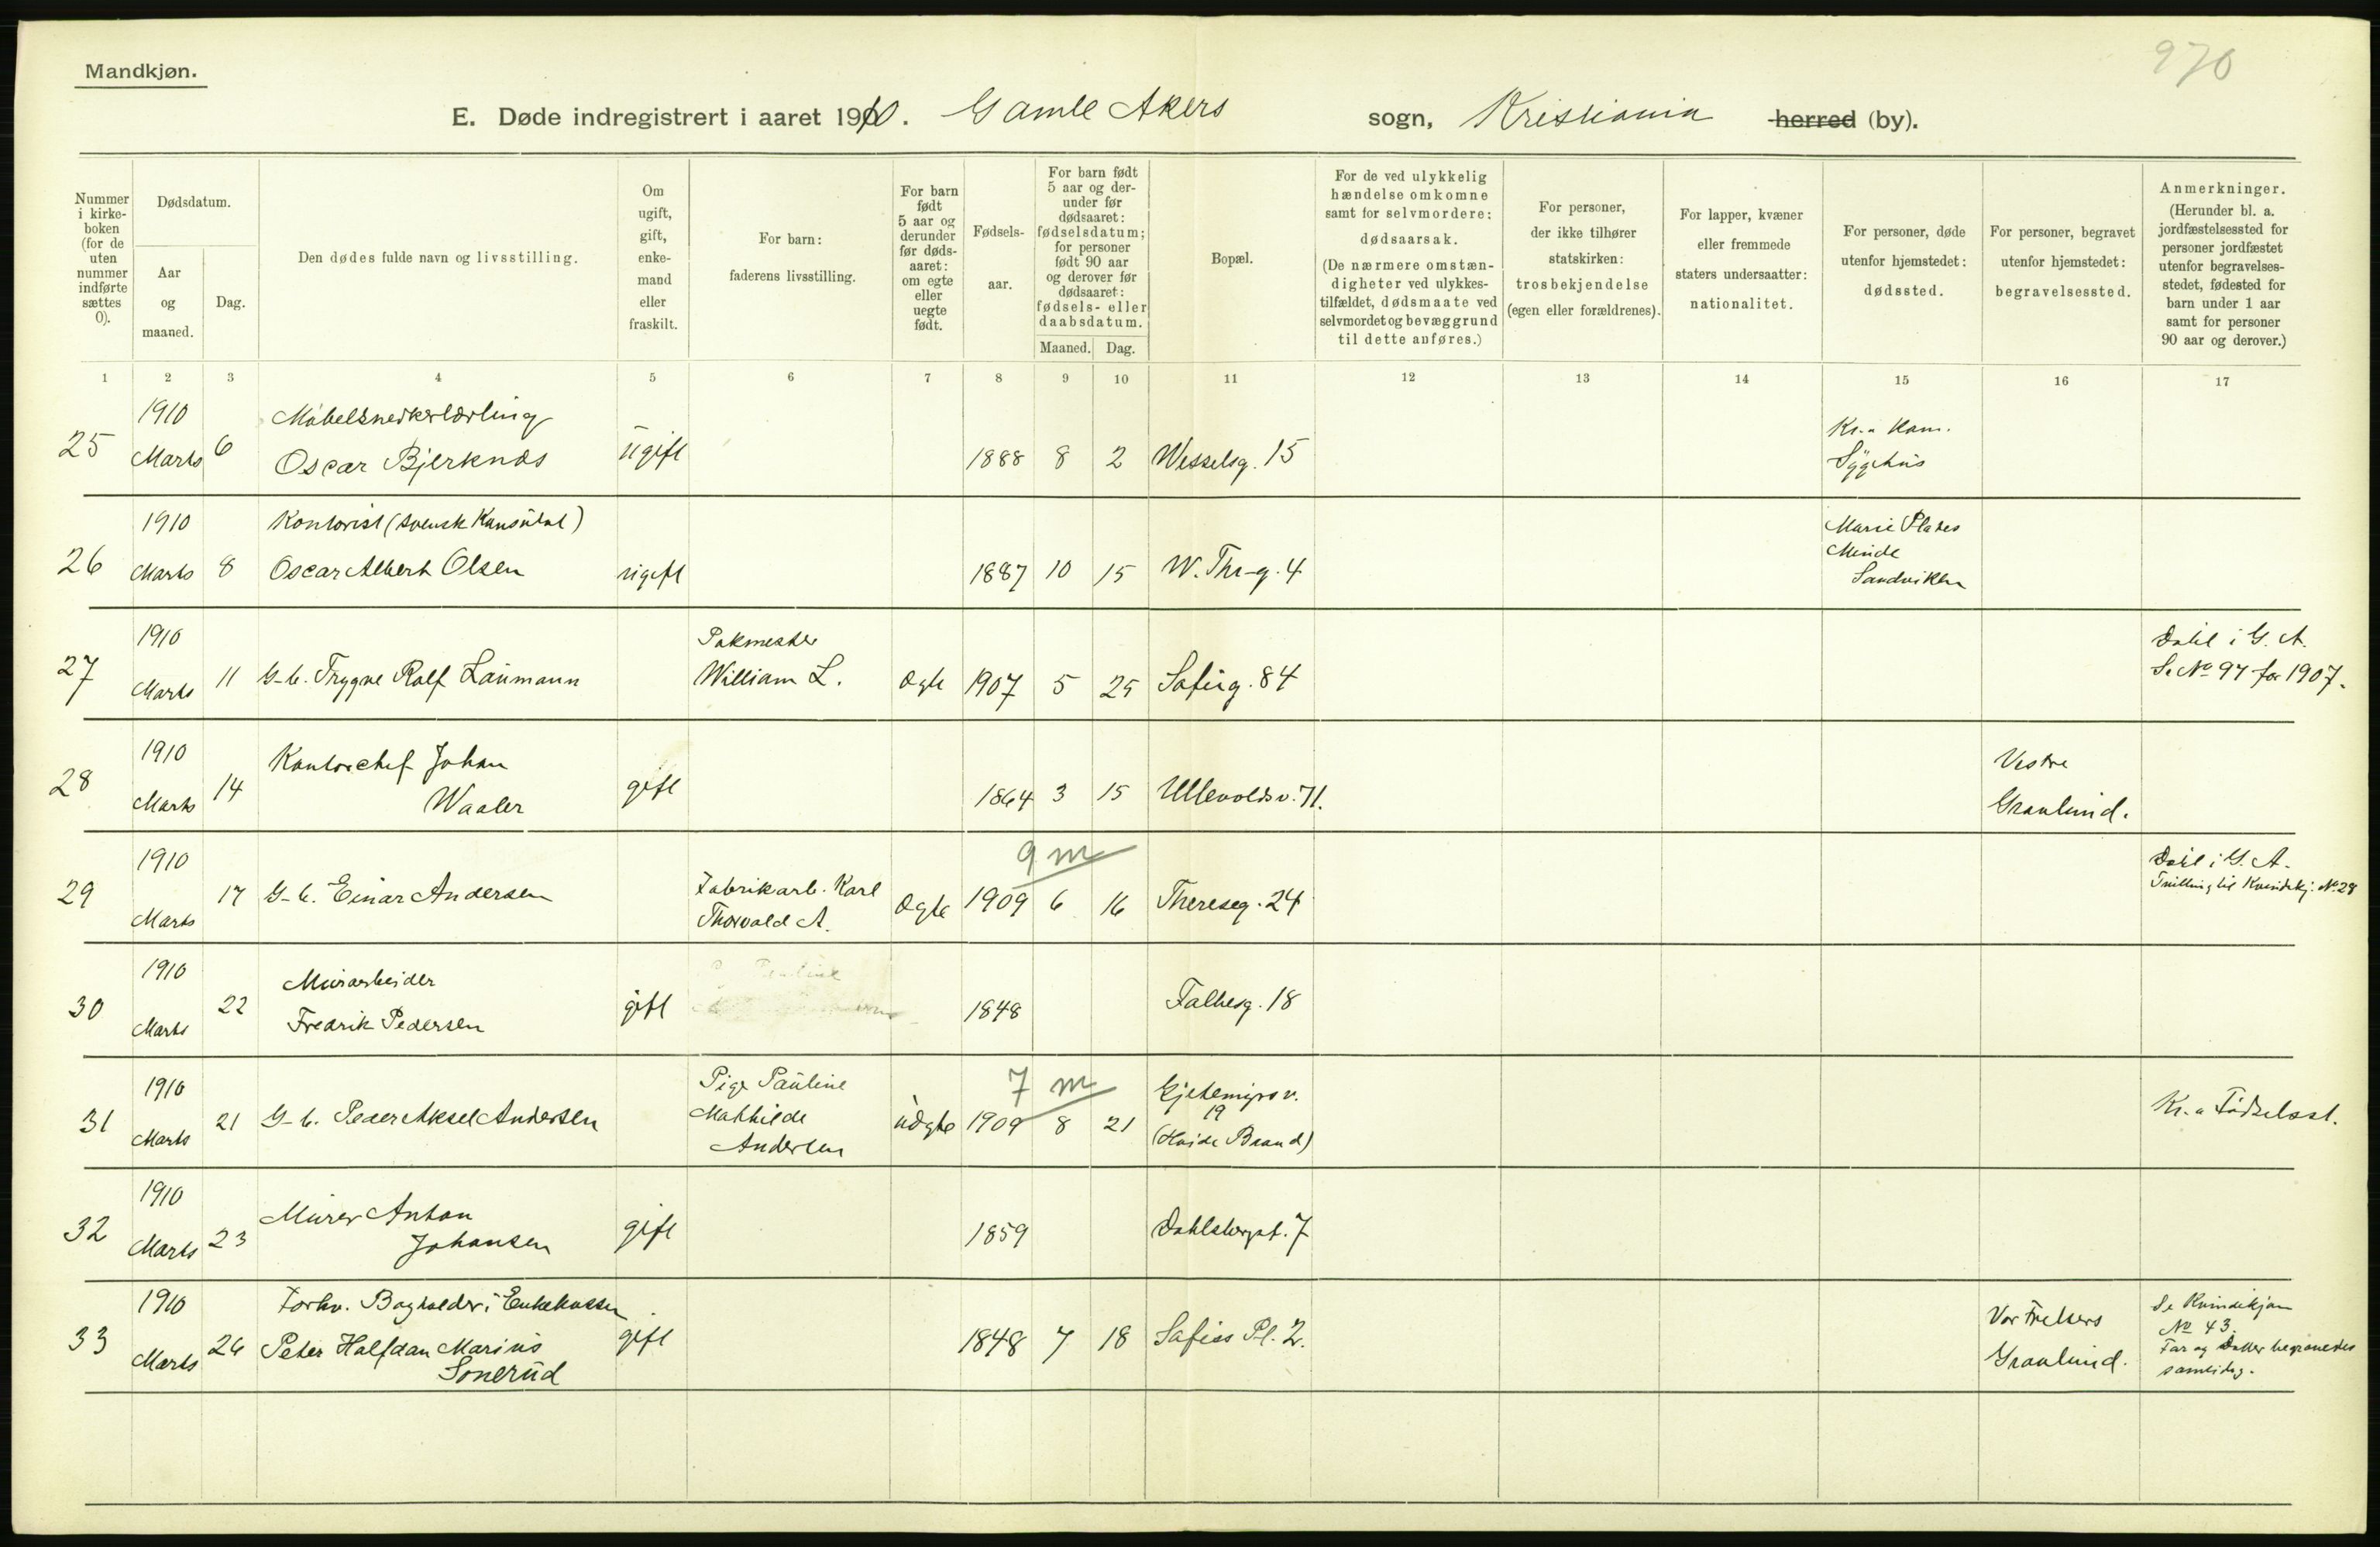 970
Mandkjøn.
E. Døde indregistrert i aaret 1910. Gamle Akers sogn, Kristiania herred (by).
Nummer i kirkeboken (for de uten nummer indførte sættes 0).
Dødsdatum.
Aar og maaned.
Dag.
Den dødes fulde navn og livsstilling.
Om ugift, gift, enkemand eller fraskilt.
For barn: faderens livsstilling.
For barn født 5 aar og derunder før dødsaaret: om egte eller uegte født.
Fødselsaar.
For barn født 5 aar og derunder før dødsaaret: fødselsdatum; for personer født 90 aar og derover før dødsaaret: fødsels- eller daabsdatum.
Maaned. Dag.
Bopæl.
For de ved ulykkelig hændelse omkomne samt for selvmordere: dødsaarsak. (De nærmere omstændigheter ved ulykkestilfældet, dødsmaate ved selvmordet og bevæggrund til dette anføres.)
For personer, der ikke tilhører statskirken: trosbekjendelse (egen eller forældrenes).
For lapper, kvæner eller fremmede staters undersaatter: nationalitet.
For personer, døde utenfor hjemstedet: dødssted.
For personer, begravet utenfor hjemstedet: begravelsessted.
Anmerkninger. (Herunder bl. a. jordfæstelsessted for personer jordfæstet utenfor begravelsesstedet, fødested for barn under 1 aar samt for personer 90 aar og derover.)
1 2 3 4 5 6 7 8 9 10 11 12 13 14 15 16 17
25 1910 Marts 6 Møbelsnedkerlærling Oscar Bjerknæs ugift 1888 8 2 Wesselsg. 15 Kr.a Kom. Sygehus
26 1910 Marts 8 Kontorist (svensk Konsulat) Oscar Albert Olsen ugift 1887 10 15 W. Thr-g. 4 Marie Plates Minde Sandviken
27 1910 Marts 11 G-b. Trygve Rolf Laumann Pakmester William L. ægte 1907 5 25 Sofieg. 84 Døbt i G. A. Se No 97 for 1907.
28 1910 Marts 14 Kontorchef Johan Waaler gift 1864 3 15 Ullevoldsv. 71. Vestre Gravlund.
9 m
29 1910 Marts 17 G-b. Einar Andersen Fabrikarb. Karl Thorvald A. ægte 1909 6 16 Thereseg. 24 Døbt i G. A. Tvilling til Kvindekj. No 28
30 1910 Marts 22 Murarbeider Fredrik Pedersen gift 1848 Falbesg. 18
7 m
31 1910 Marts 21 G-b. Peder Aksel Andersen Pige Pauline Mathilde Andersen uægte 1909 8 21 Gjetemyrsv. 19 (Hvide Brand) Kr.a Fødselsst.
32 1910 Marts 23 Murer Anton Johansen gift 1859 Dahlsbergst. 7
33 1910 Marts 26 Forhv. Bogholder i Enkekassen Peter Halfdan Marius Sonerud gift 1848 7 18 Sofies Pl. 2. Vor Frelsers Gravlund. Se Kvindekjøn No 43. Far og Datter begravedes samtidig.